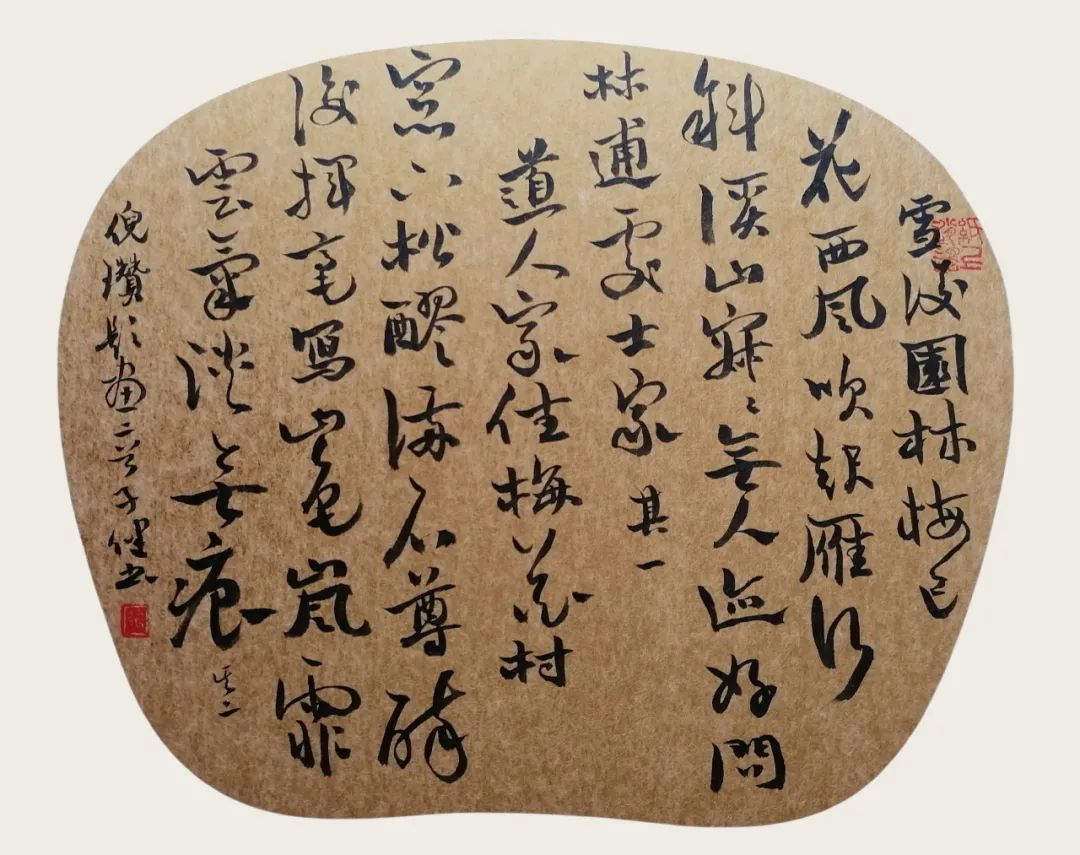 雪後園林梅已
花西風吹起雁行
斜溪山寂〻無人迹好問
林逋處士家 其一
道人家住梅花村
窗下松醪滿石尊醉
後揮毫寫山色嵐霏
雲氣淡無痕 其二
倪瓚題畫二首子健書